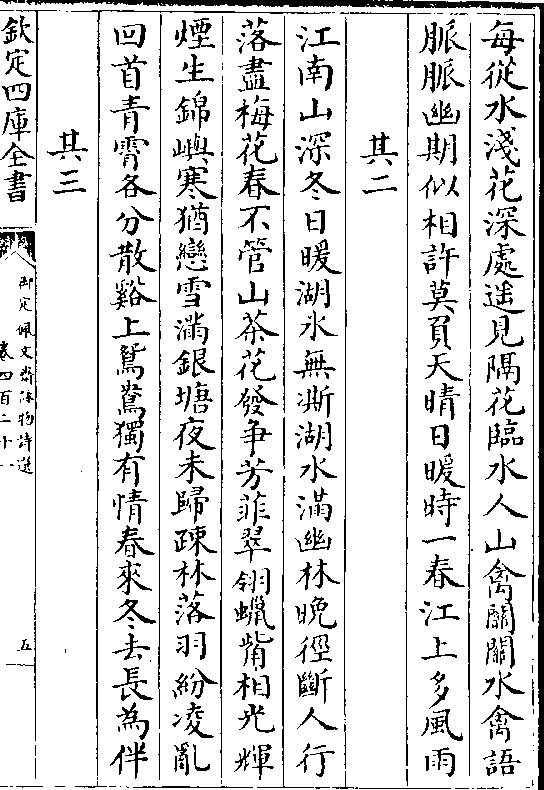 每從水淺花深處遥見隔花臨水人山禽關關水禽語
脈脈幽期似相許莫負天晴日暖時一春江上多風雨
其二
江南山深冬日暖湖氷無凘湖水滿幽林晚徑斷人行
落盡梅花春不管山茶花發争芳菲翠翎蠟觜相光輝
煙生錦嶼寒猶戀雪滿銀塘夜未歸疎林落羽紛凌亂
回首青霄各分散谿上鴛鴦獨有情春來冬去長為伴
其三
欽定四庫全書
御定佩文齋詠物詩選
卷四百二十一
五